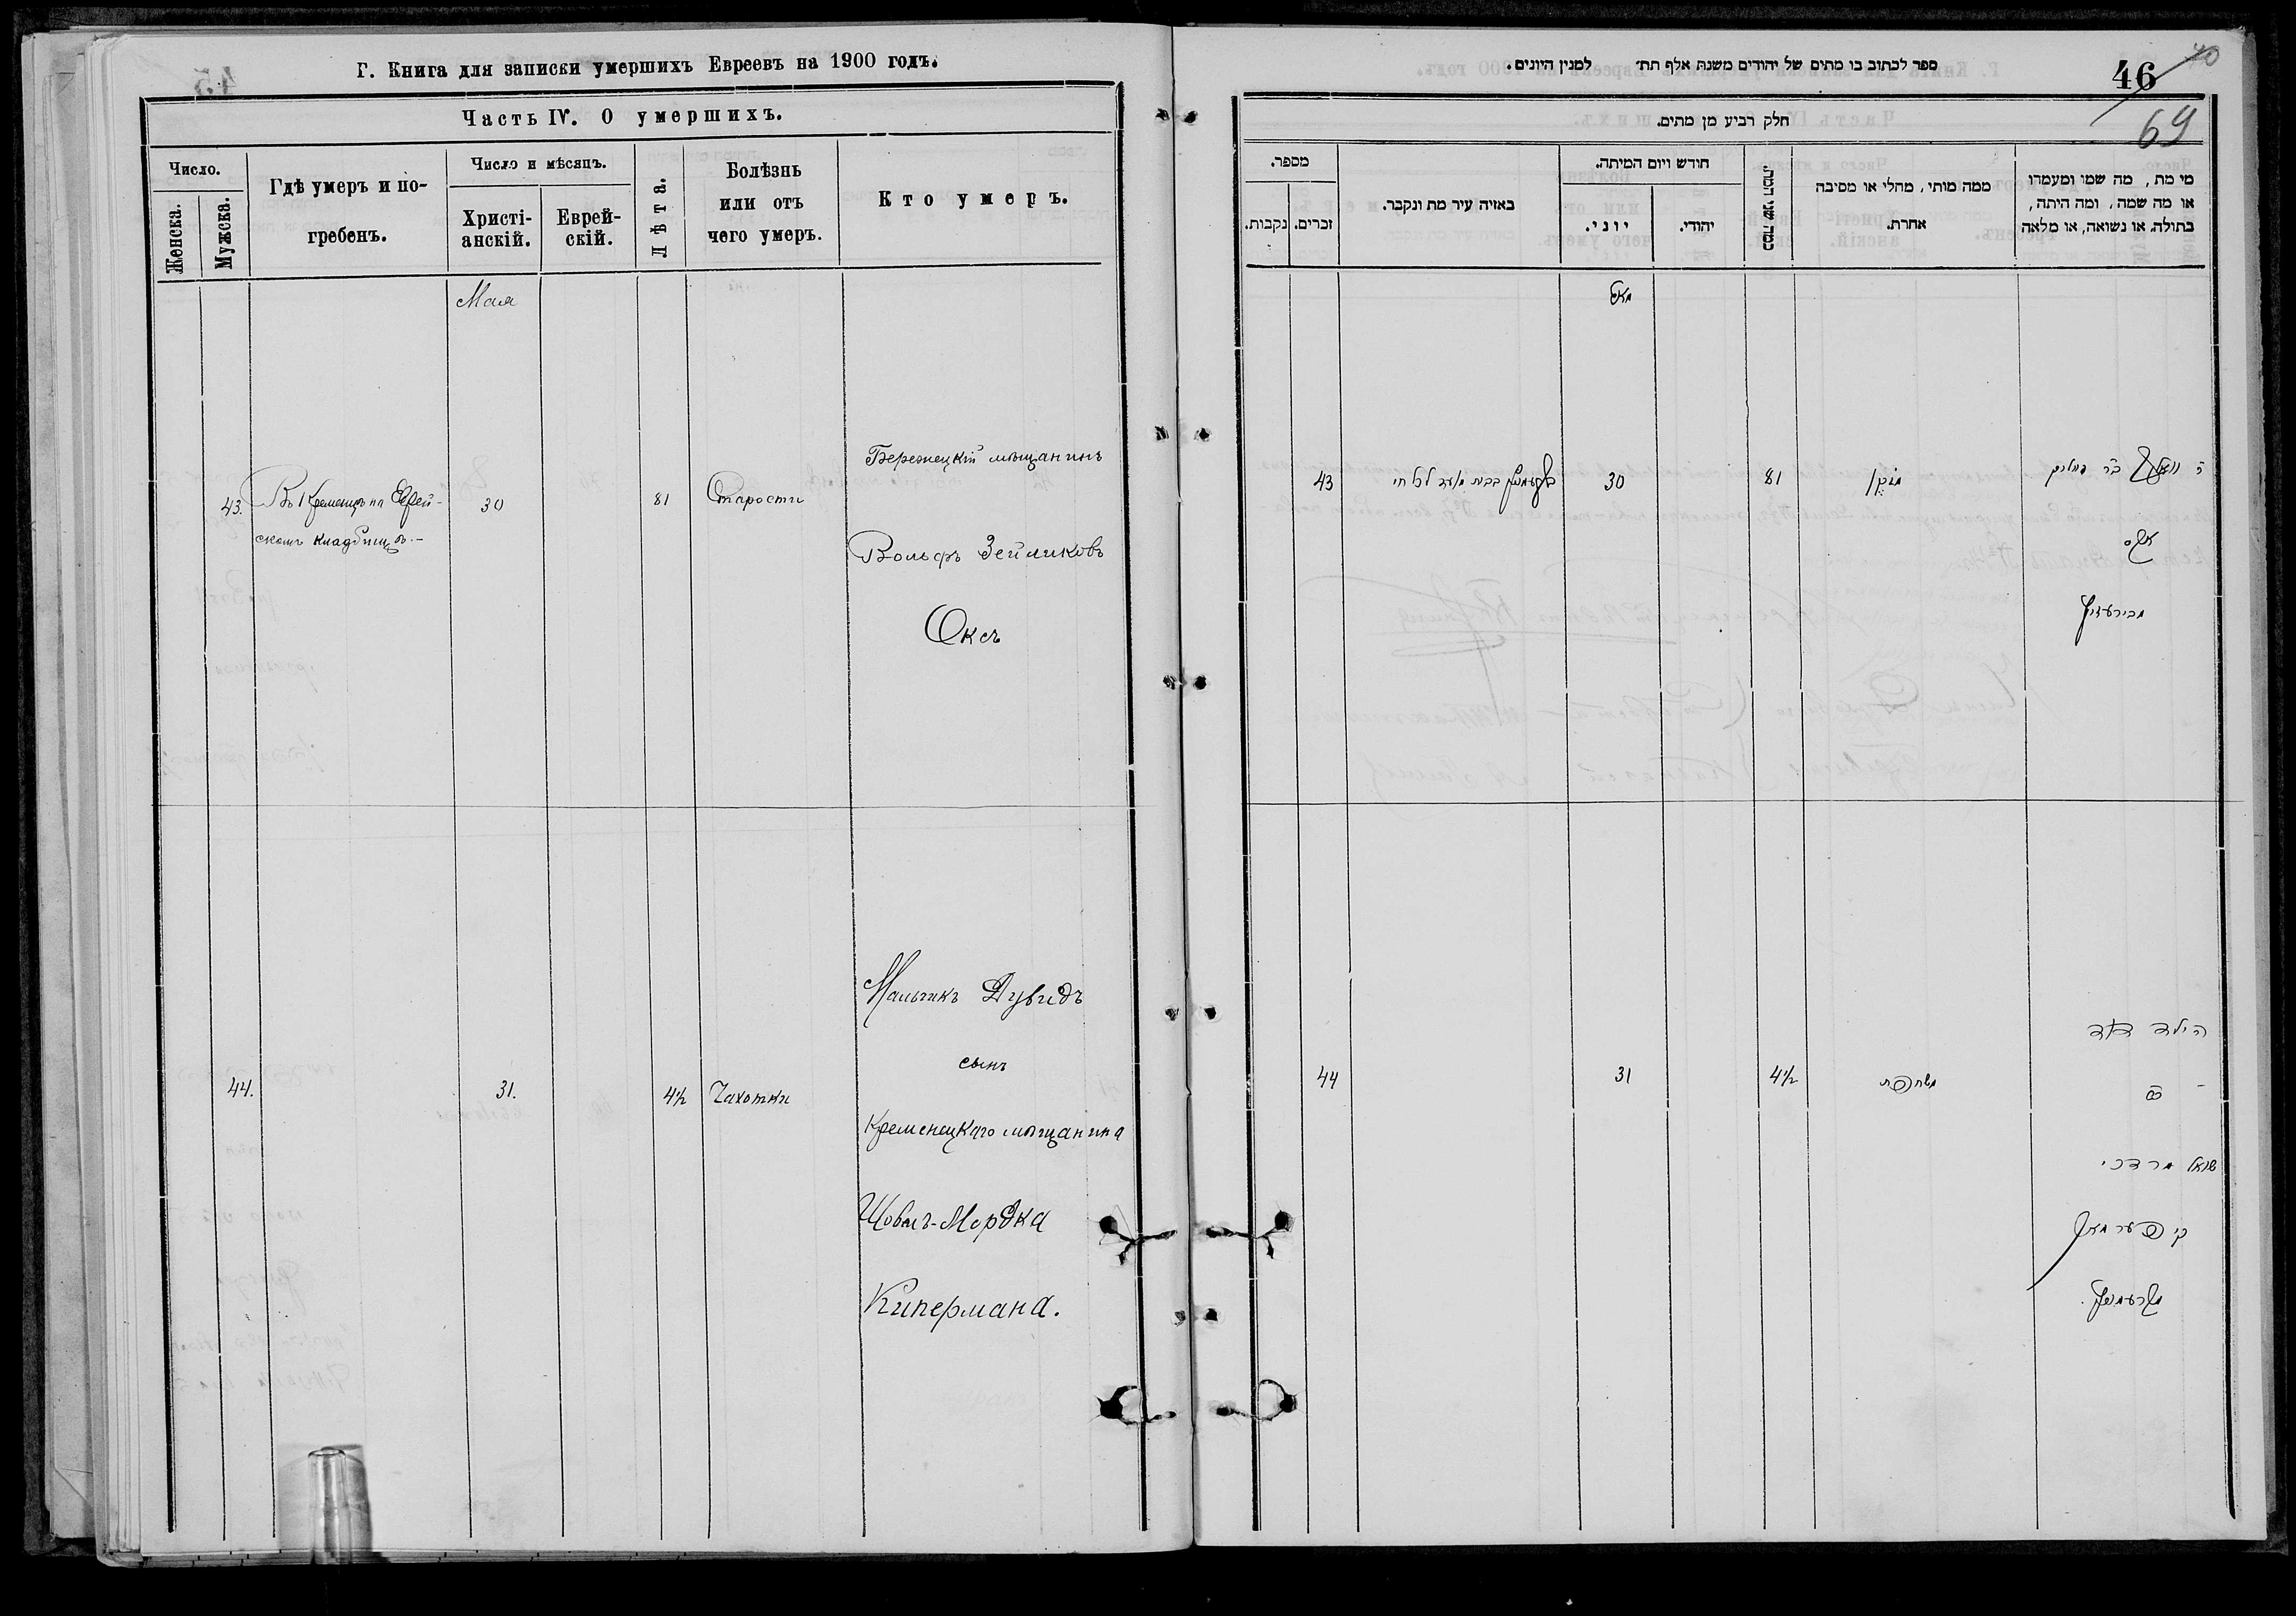 Г. Книга для записки умершихъ Евреевъ на 1900 годъ.
Часть IV. О умершихъ.
Число.
Женска.
Мужска.
Гдѣ умеръ и по-
гребенъ.
Число и мѣсяцъ.
Христі-
анскій.
Еврей-
скій.
Лѣта.
Болѣзнь
или отъ
чего умеръ.
Кто умеръ.
Мая
43.
Въ Кременцѣ на Еврей-
скомъ кладбищѣ.-
30
81
Старости
Бережецкій мѣщанинъ
Вольфъ Зейликовъ
Оксъ
44.
31.
4½
Чахотки
Мальчикъ Дувидъ
сынъ
Кременецкаго мѣщанина
Шовель-Мордка
Кипермана.
ספר לכתוב בו מתים של יהודים משנת אלף תת׳ למנין היונים.
46
70
69
חלק רביע מן מתים.
מספר.
נקבות.
זכרים.
באזיה עיר מת ונקבר.
חודש ויום המיתה.
יוני.
יהודי.
כמה שני המת.
ממה מותי, מחלי או מסיבה
אחרת.
מי מת, מה שמו ומעמדו
או מה שמה, ומה היתה,
בתולה או נשואה, או מלאה
מאי
43
30
81
מזקן
אקס
44
31
4½
משחפת
הילד דוד
בן
שואל מרדכי
קיפערמאן